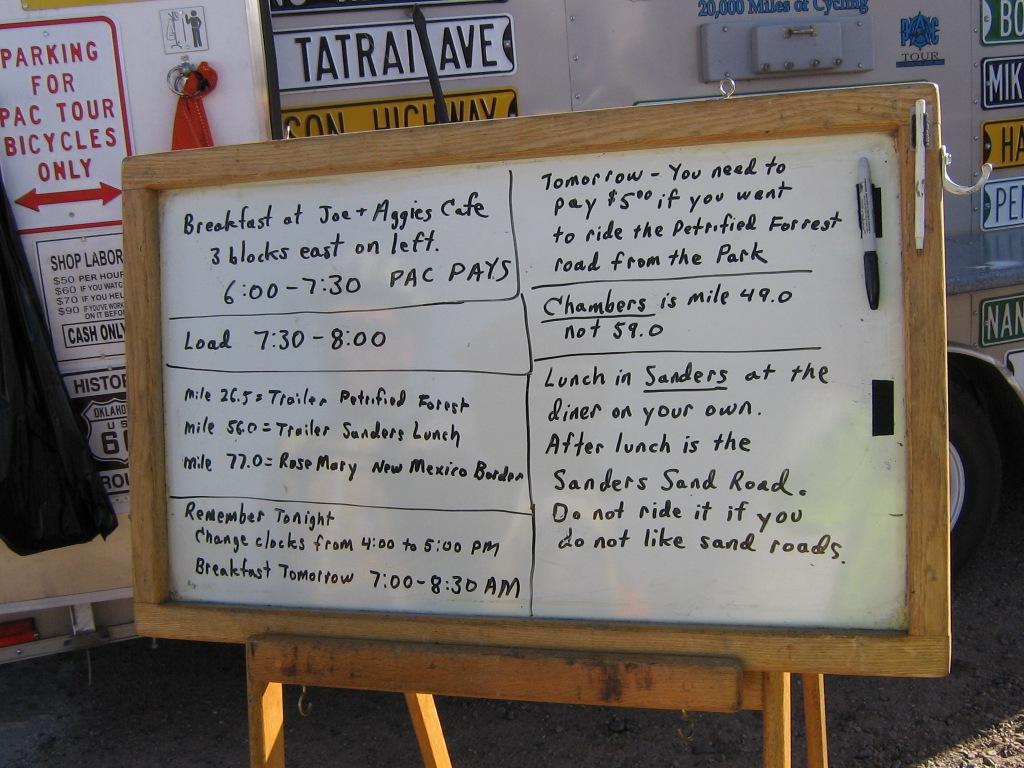 20,000 Miles of Cycling
TATRAI AVE
SON HIGHWAY
TOUR
BO
MIK
HA
PE
NAN
PARKING
FOR
PAC TOUR
BICYCLES
ONLY
SHOP LABOR
$50 PER HOUR
$60 IF YOU WATC
$70 IF YOU HEL
$90 IF YOU'VE WORK
ON IT BEFO
CASH ONLY
HISTOR
OKLAHO
U S
6
ROU
Breakfast at Joe + Aggies Cafe
3 blocks east on left.
6:00 - 7:30 PAC PAYS
Load 7:30 - 8:00
mile 26.5 = Trailer Petrified Forest
mile 56.0 = Trailer Sanders Lunch
mile 77.0 = Rose Mary New Mexico Border
Remember Tonight
Change clocks from 4:00 to 5:00 PM
Breakfast Tomorrow 7:00 - 8:30 AM
Tomorrow - You need to
pay $5.00 if you want
to ride the Petrified Forrest
road from the Park
Chambers is mile 49.0
not 59.0
Lunch in Sanders at the
diner on your own.
After lunch is the
Sanders Sand Road.
Do not ride it if you
do not like sand roads.